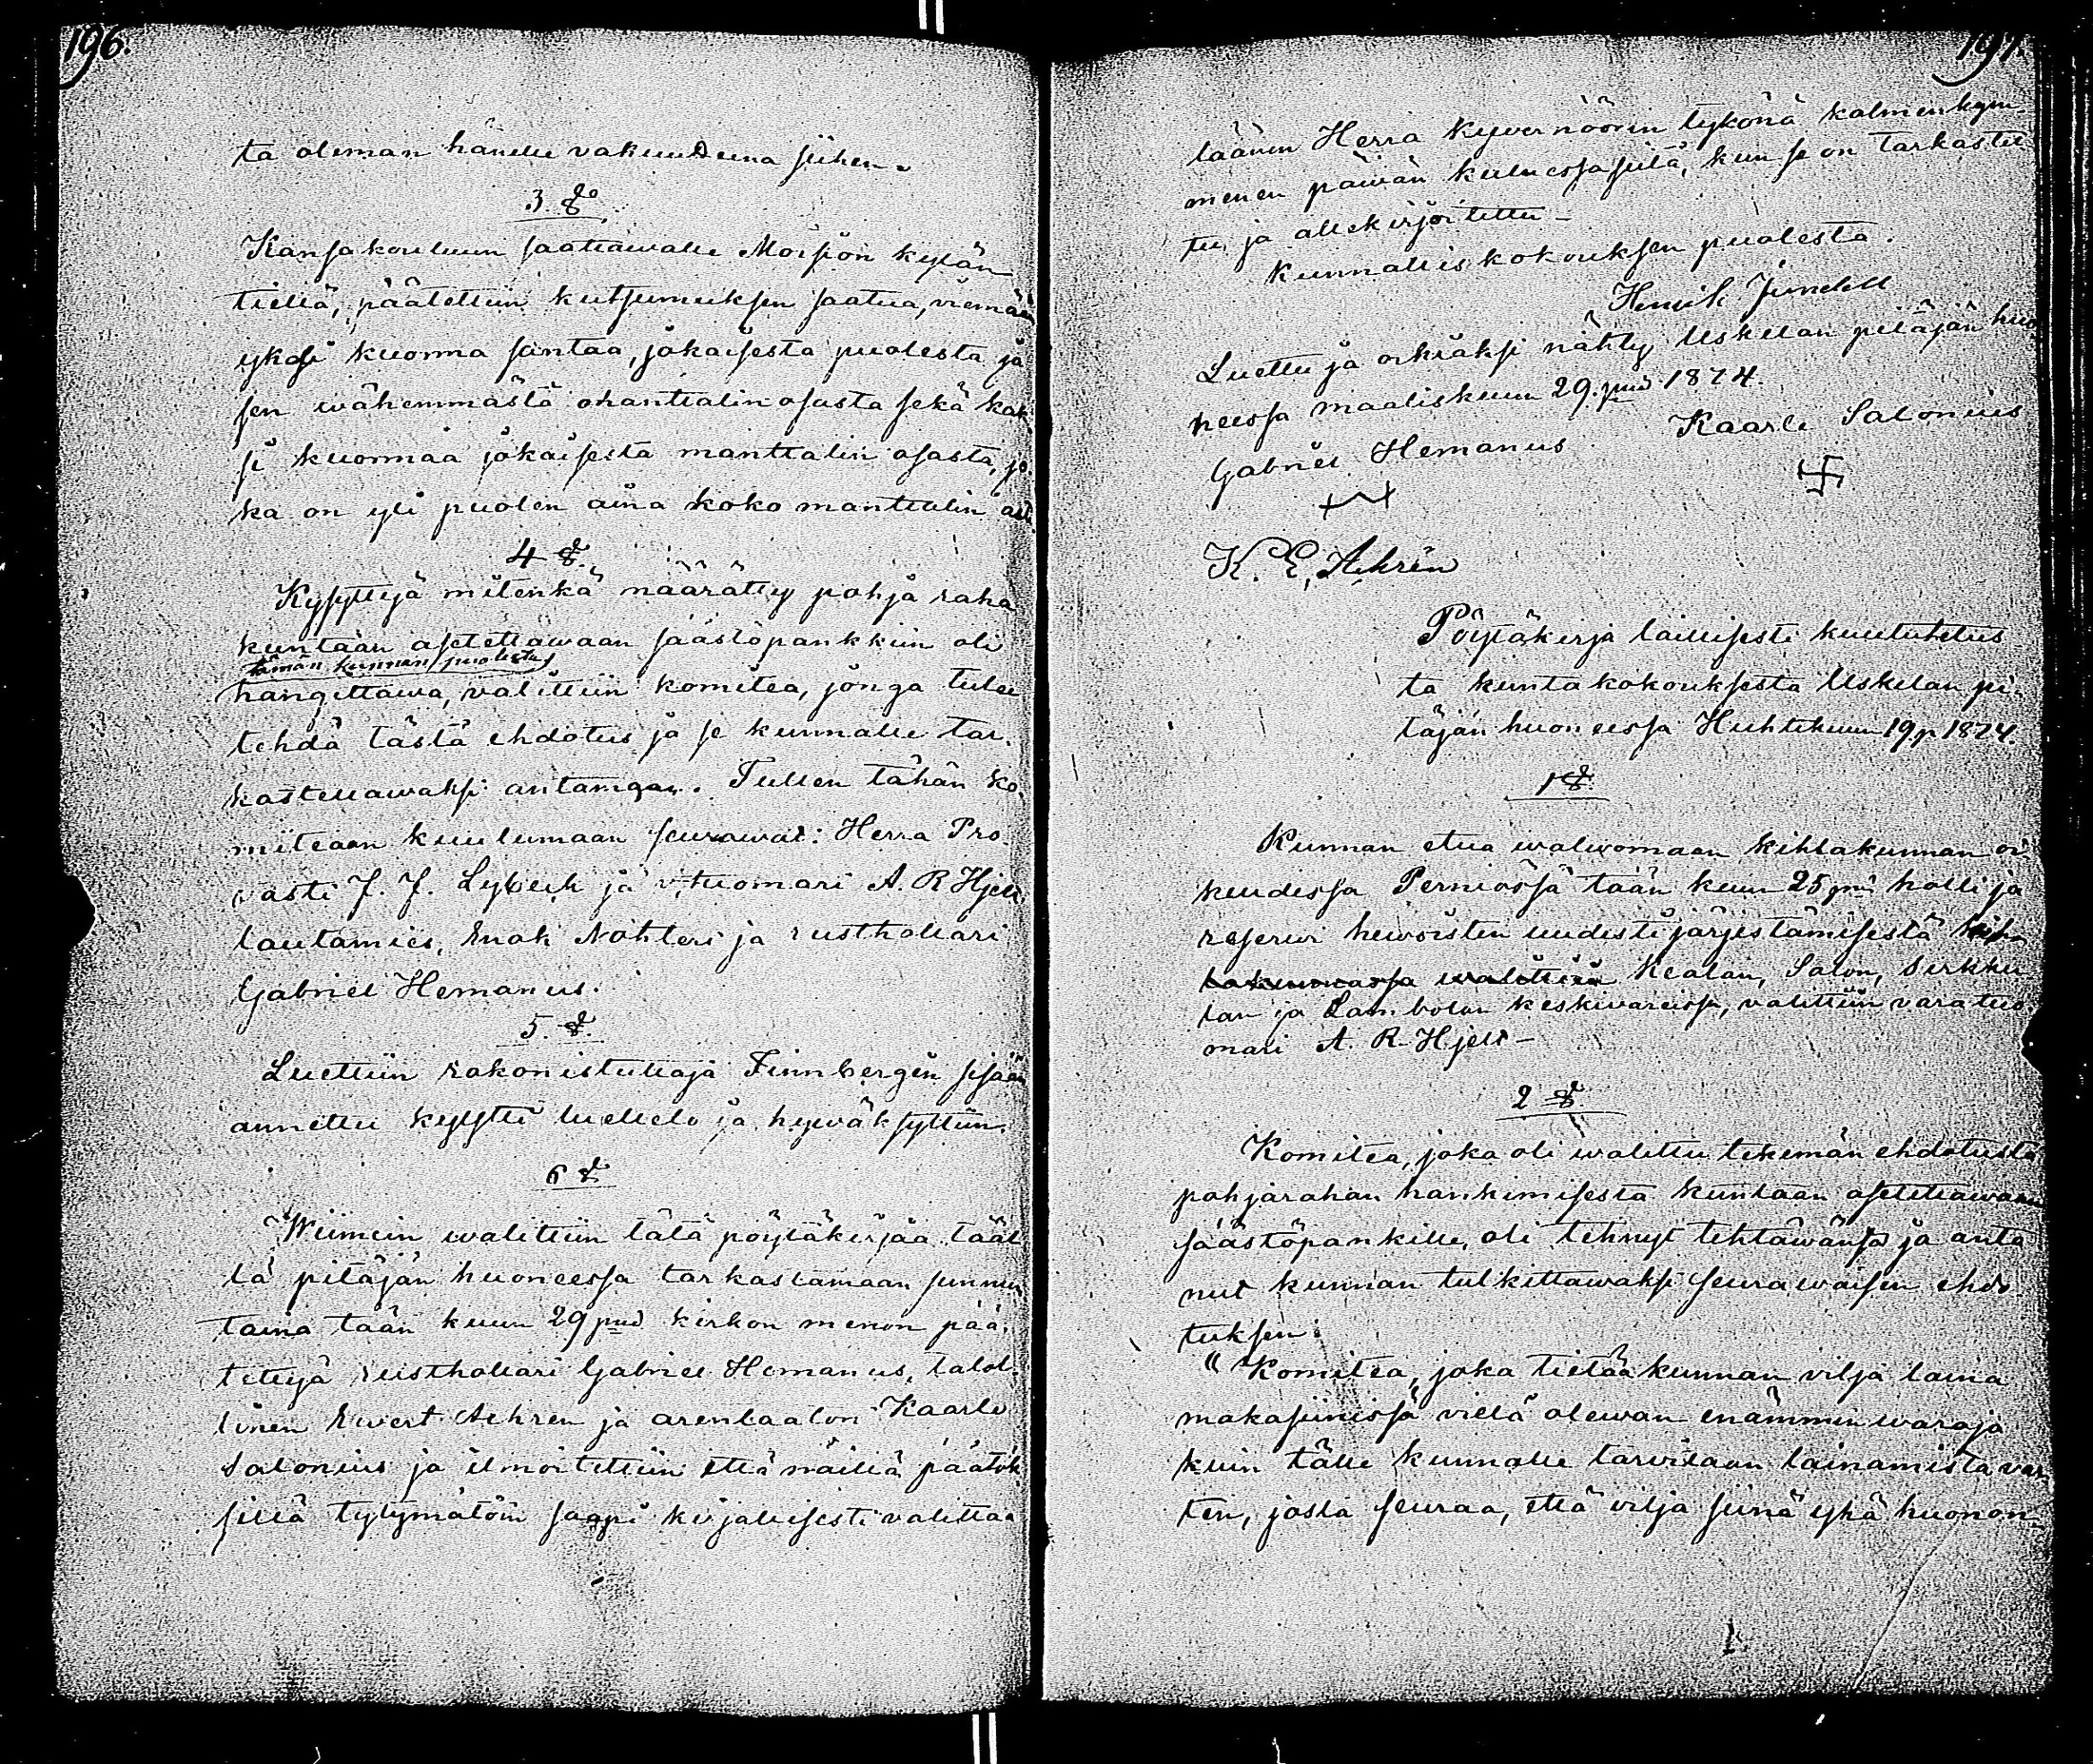 196.
ta oleman hänelle vakuudeena siihen.
3 §
Kansakouluun saattawalle Moision kylän
tiellä, päätettiin kutsumuksen saatua, viemään
yksi kuorma santaa, jokaisesta puolesta ja
sen wähemmästä manttalin osasta sekä kak
si kuormaa jokaisesta manttalin osasta, jo
ka on yli puolen aina koko manttalin asti
4 §.
Kysyttyjä mitenkä määrätty pohja raha
kuntaan asetettawaan säästöpankkiin oli
tämän kunnan puolesta
hangittawa, valittiin komitea, jonga tulee
tehdä tästä ehdotus ja se kunnalle tar
kastettawaksi antaman. Tullen tähän ko
miteaan kuulumaan seurawat: Herra Pro
vasti J. J. Lybeck ja v.tuomari A. R Hjelt
lautamies, Enok Nohteri ja rusthollari
Gabriel Hemanus.
5 §.
Luettiin rakonistuttaja Finnbergin sisään
annettu kysytti luettelo ja hywäksyttiin.
6 §
Wiimein walittiin tätä pöytäkirjaa tääl
lä pitäjän huoneessa tarkastamaan sunnun
taina tään kuun 29 p:nä kirkon menon pää
tettyä rusthollari Gabriel Hemanus, talol
linen Ewert Aehren ja arentaatori Kaarle
Salonius ja ilmoitettiin että näillä päätök
sillä tytymätöin saapi kirjallisesti valittaa
197.
läänin Herra Kuvernöörin tykönä kolmenkym
menen päiwän kuluessa siitä, kun se on tarkastet
tu ja allekirjoitettu –
Kunnalliskokouksen puolesta.
Henrik Jundell
Luettu ja oikiaksi nähty Uskelan pitäjän huo
neessa maaliskuun 29. p:nä 1874.
Gabriel Hemanus Kaarle Salonius
K. E. Aehrén
Pöytäkirja laillisesti kuulutetus
ta kuntakokouksesta Uskelan pi
täjän huoneessa Huhtikuun 19 p 1874.
1 §.
Kunnan etua walwomaan kihlakunnan oi
keudessa Perniössä tään kuun 25 p:nä holli ja
reserwi hewoisten uudesti järjestämisestä
Kealan, Salon, Sirkku
lan ja Lambolan keskivareissa, valittiin varatuo
mari A. R. Hjelt –
2 §
Komitea, joka oli walittu tekemän ehdotusta
pohjarahan hankimisesta kuntaan asetettawaan
säästöpankille, oli tehnyt tehtäwänsä ja anta
nut kunnan tutkittawaksi seurawaisen ehdo
tuksen:
"Komitea, joka tietää kunnan vilja laina
makasiinissa vielä olewan enämmin waroja
kuin tälle kunnalle tarvitaan lainamista var
ten, josta seuraa, että vilja siinä yhä huonon